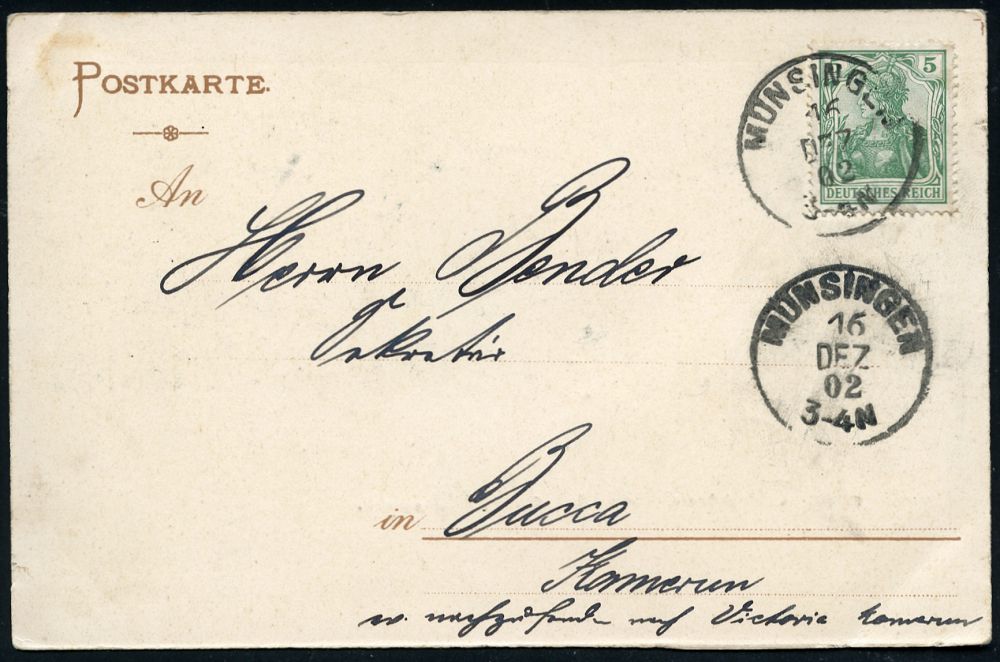 POSTKARTE.
MÜNSINGEN
16
DEZ
02
3-4N
5
DEUTSCHES REICH
An
Herrn Bender
Sekretär
MÜNSINGEN
16
DEZ
02
3-4N
in Bucca
Kamerun
ev. nachzusenden nach Victoria Kamerun